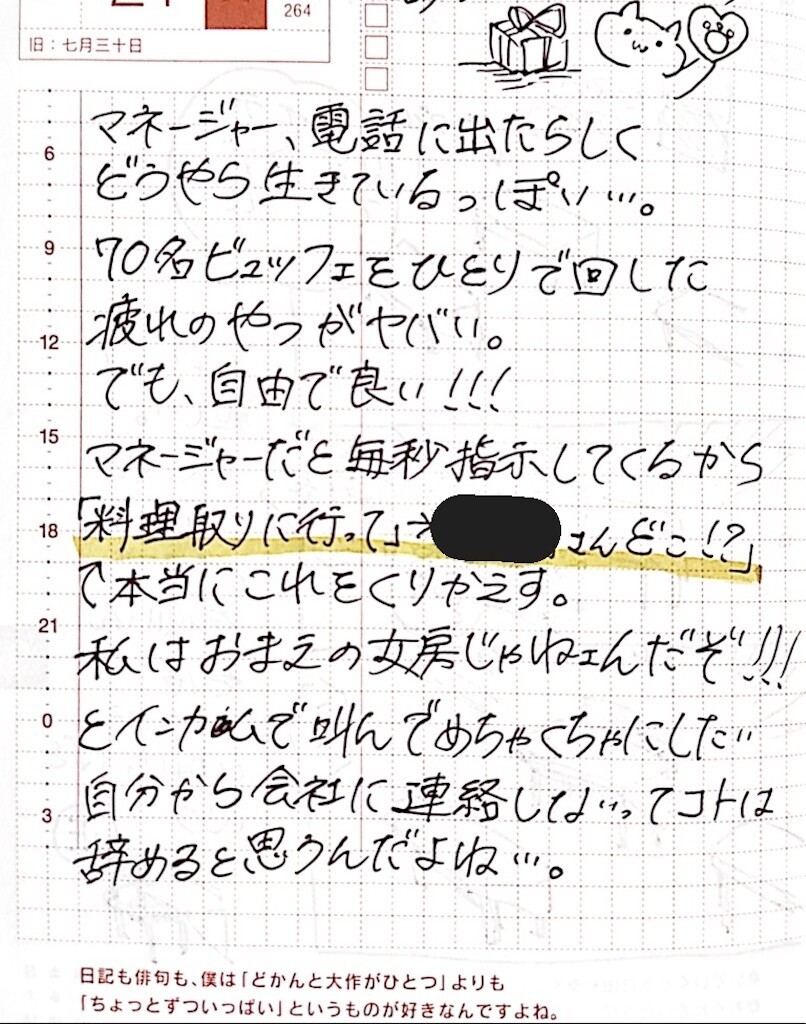 264
旧：七月三十日
マネージャー、電話に出たらしく
6
どうやら生きているっぽい…。
9
70名ビュッフェをひとりで回した
12
疲れのやつがヤバい。
でも、自由で良い!!!
15
マネージャーだと毎秒指示してくるから
18
「料理取りに行って」→ さんどこ!?」
↑本当にこれをくりかえす。
21
私はおまえの女房じゃねェんだぞ!!!
0
とインカムで叫んでめちゃくちゃにしたい
3
自分から会社に連絡しないってコトは
辞めると思うんだよね…。
日記も俳句も、僕は「どかんと大作がひとつ」よりも
「ちょっとずついっぱい」というものが好きなんですよね。